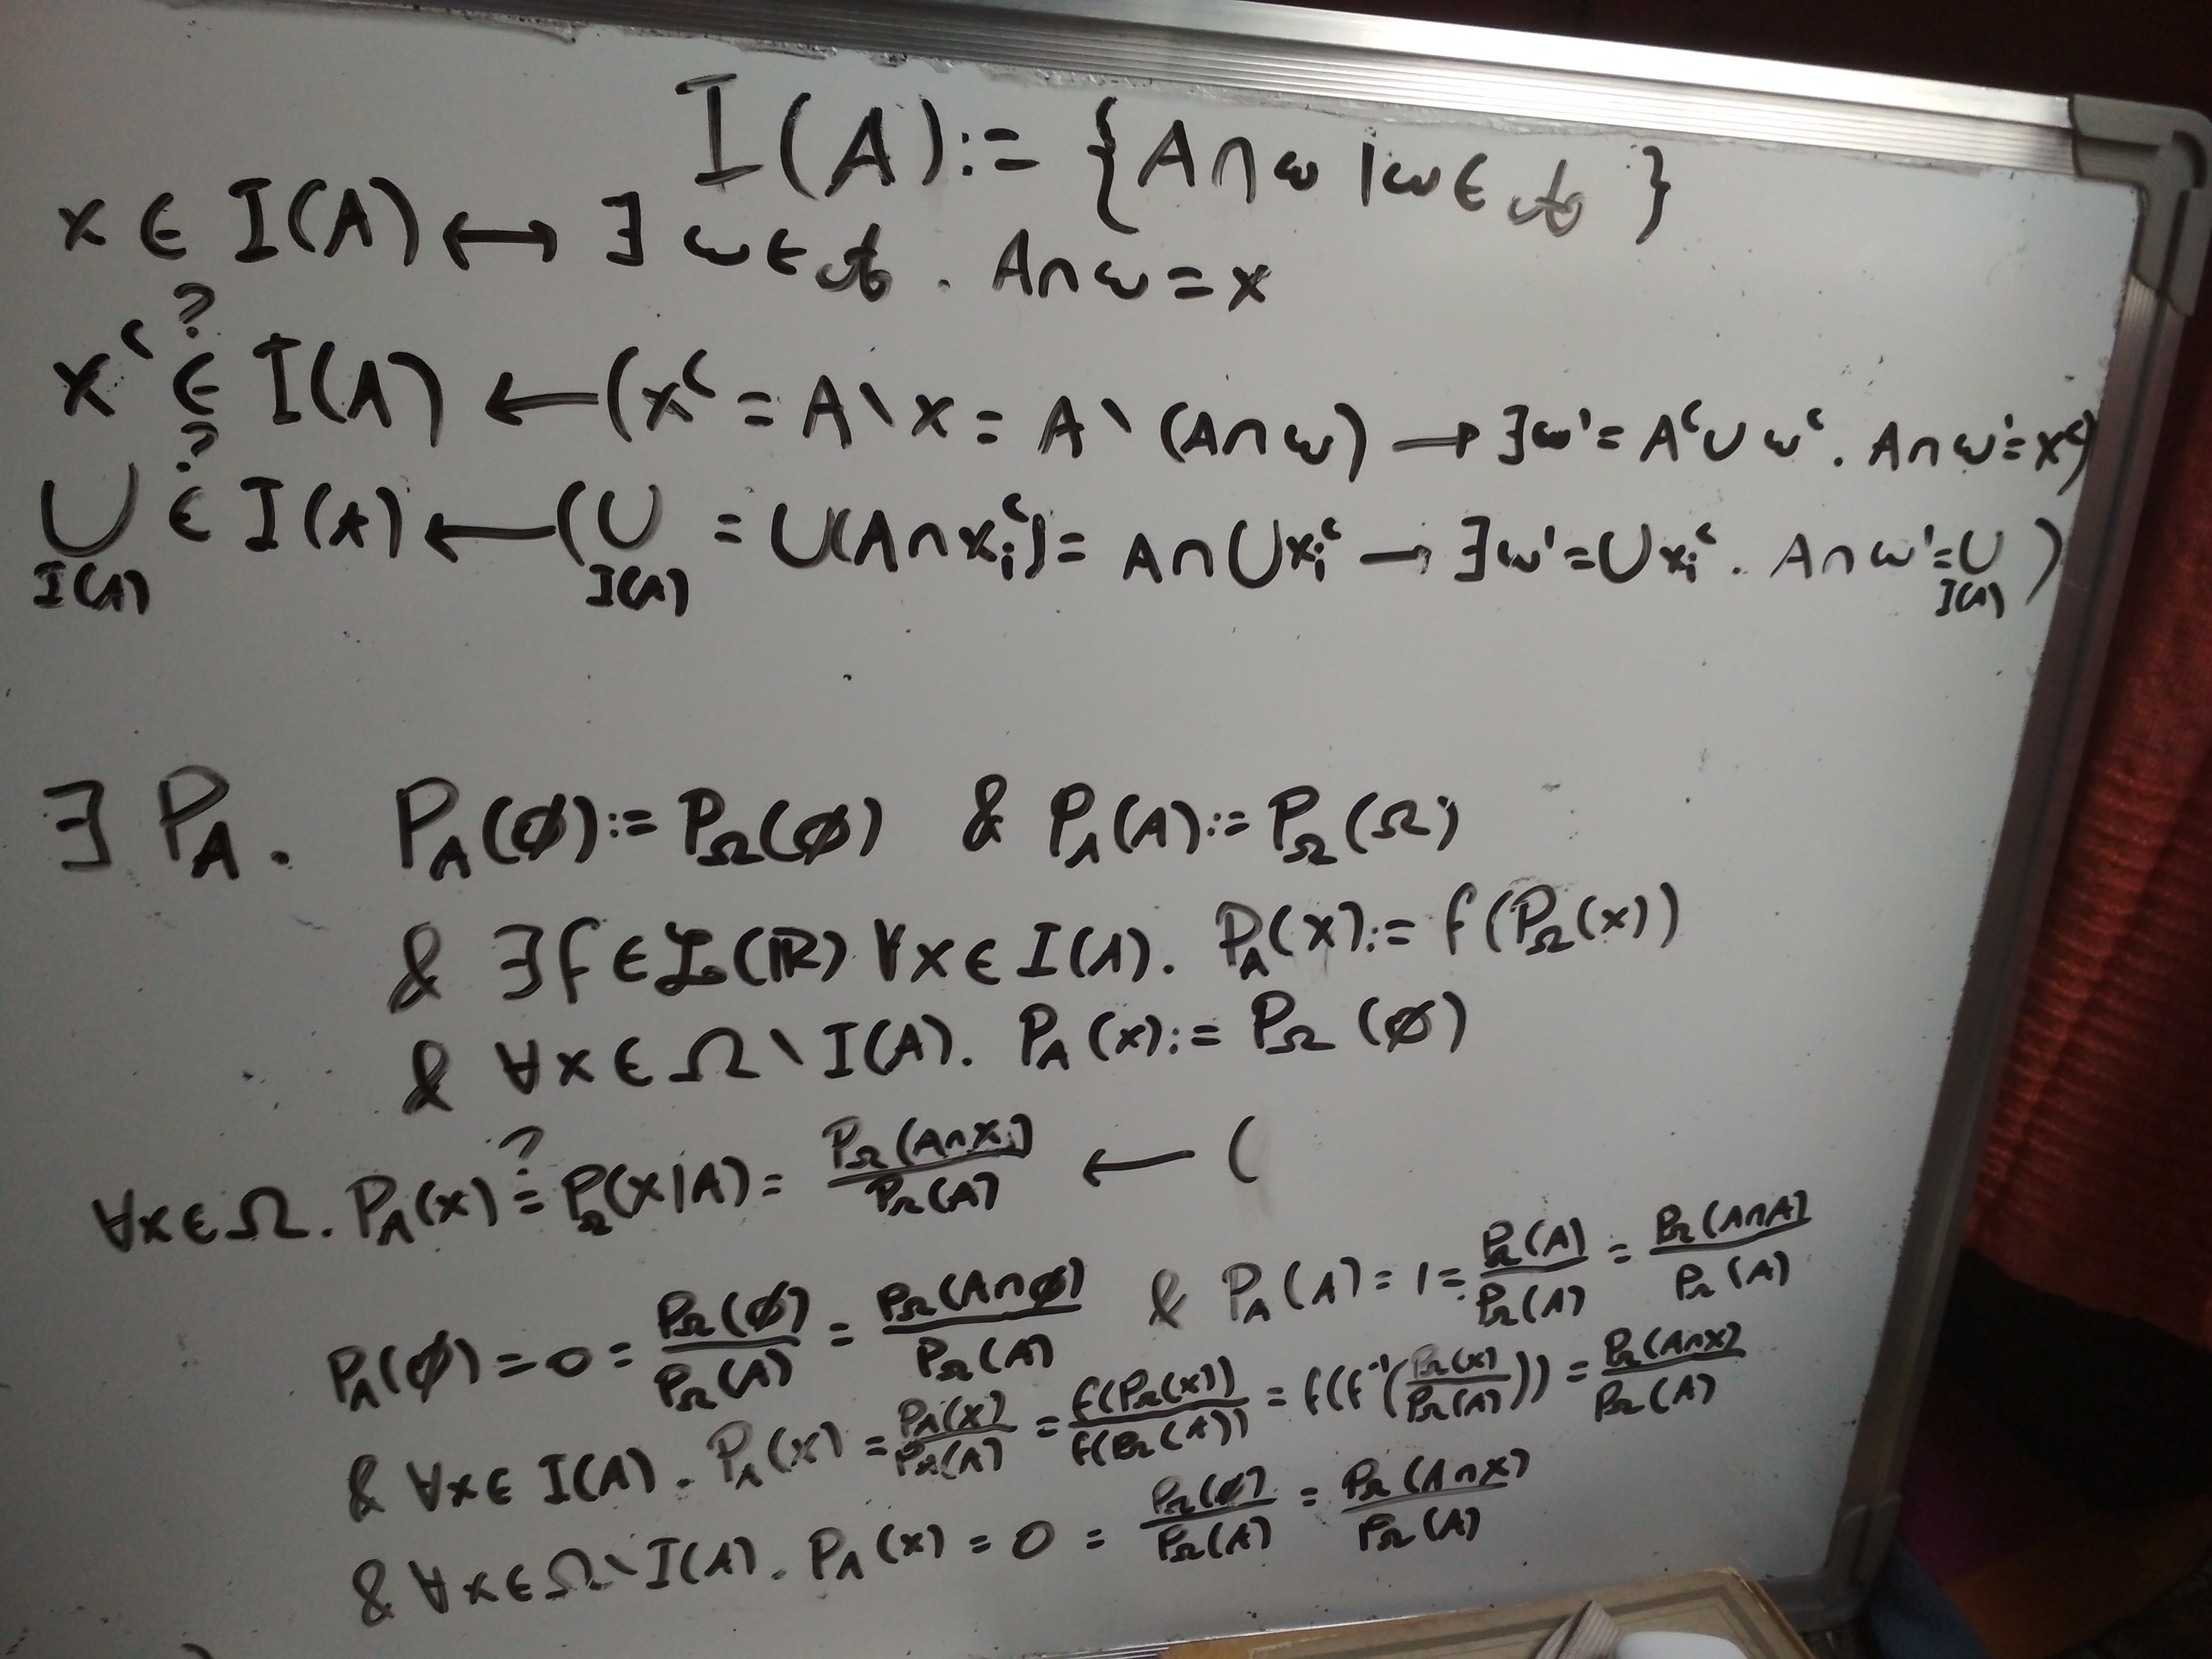 I(A) := {A∩ω | ω∈𝒜}
x ∈ I(A) ↔ ∃ ω∈𝒜 . A∩ω = x
xᶜ ∈? I(A) ← (xᶜ = A∖x = A∖(A∩ω) → ∃ω' = Aᶜ∪ωᶜ . A∩ω' = xᶜ)
⋃_I(A) ∈? I(A) ← (⋃_I(A) = ⋃(A∩xᵢᶜ) = A∩⋃xᵢᶜ → ∃ω' = ⋃xᵢᶜ . A∩ω' = ⋃_I(A))
∃ P_A . P_A(∅) := P_Ω(∅) & P_A(A) := P_Ω(Ω)
& ∃f∈ℒ(ℝ) ∀x∈I(A). P_A(x) := f(P_Ω(x))
& ∀x∈Ω∖I(A). P_A(x) := P_Ω(∅)
∀x∈Ω. P_A(x) =? P_Ω(x|A) = P_Ω(A∩x)/P_Ω(A) ← (
P_A(∅) = 0 = P_Ω(∅)/P_Ω(A) = P_Ω(A∩∅)/P_Ω(A) & P_A(A) = 1 = P_Ω(A)/P_Ω(A) = P_Ω(A∩A)/P_Ω(A)
& ∀x∈I(A). P_A(x) = P_A(x)/P_A(A) = f(P_Ω(x))/f(P_Ω(A)) = f(f⁻¹(P_Ω(x)/P_Ω(A))) = P_Ω(A∩x)/P_Ω(A)
& ∀x∈Ω∖I(A). P_A(x) = 0 = P_Ω(∅)/P_Ω(A) = P_Ω(A∩x)/P_Ω(A)
)